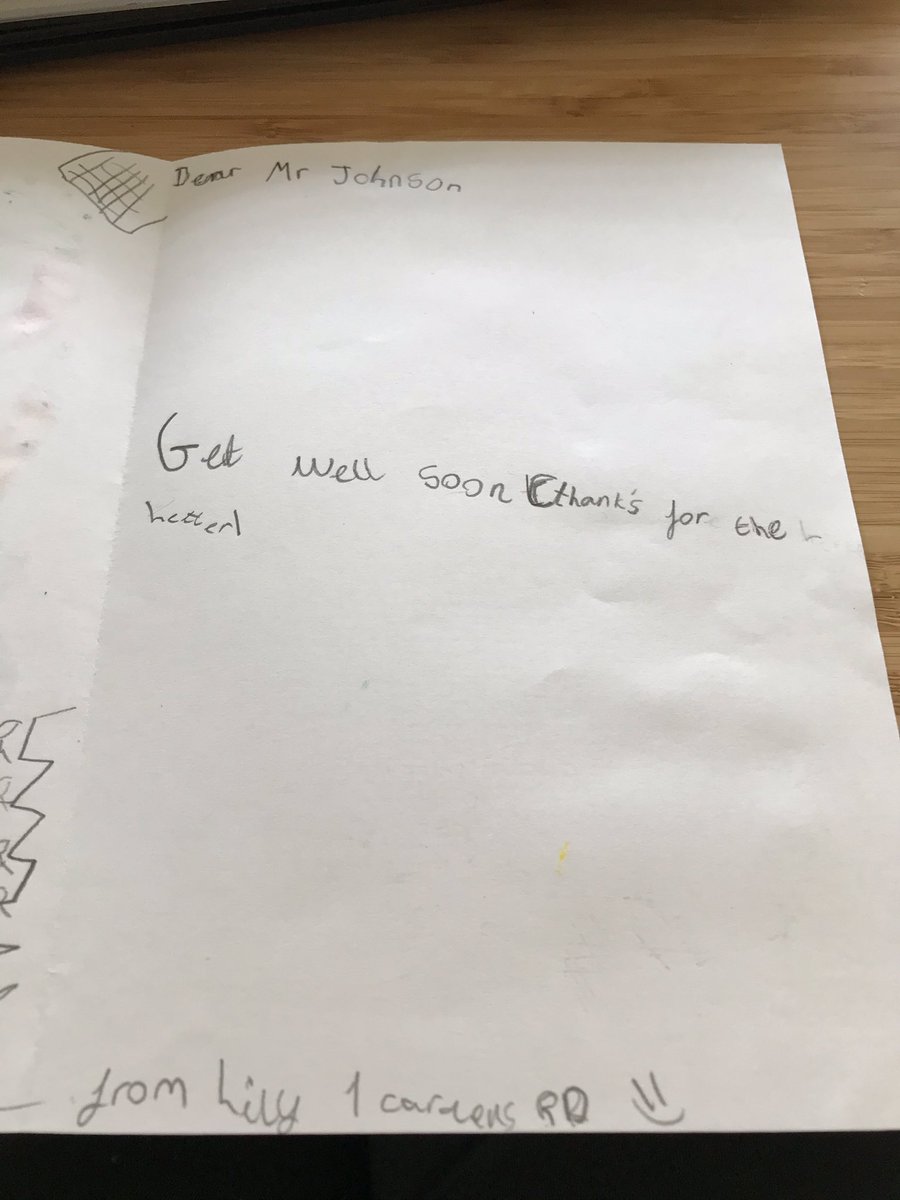 Dear Mr Johnson
Get well soon (thank's for the
letter)
from Lily 1 careens RD